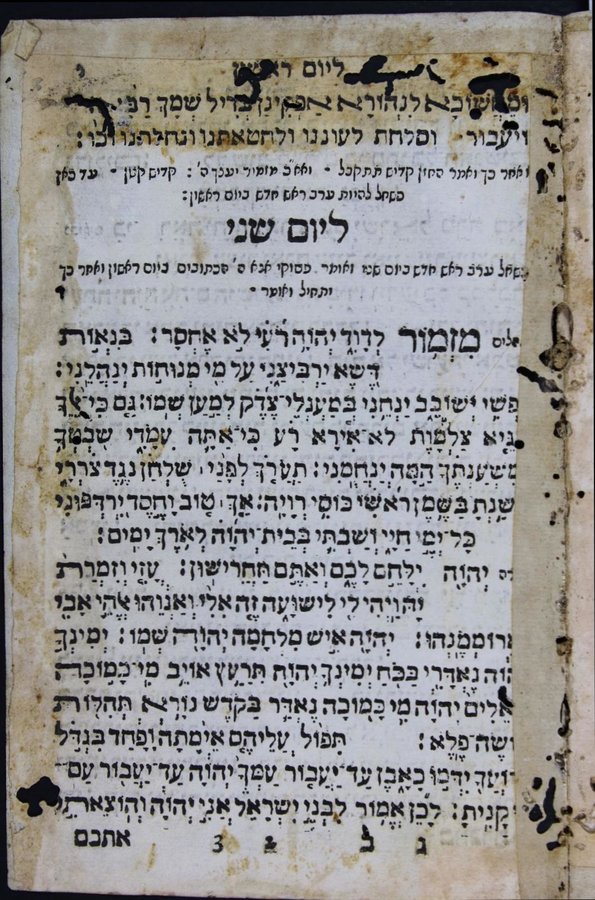 ליום ראשון
לנהורא אפיקינן בדיל שמך רבי
ויעבור וסלחת לעוננו ולחטאתנו ונחלתנו וכו׳:
ואחר כך יאמר החזן קדיש תתקבל ואח״כ מזמור יענך ה׳: קדיש קטן עד כאן
כשחל להיות ערב ראש חדש ביום ראשון:
ליום שני
כשחל ערב ראש חדש ביום שני יאומר פסוקי אנא ה׳ הכתובים ביום ראשון ואחר כך
יתחיל ואומר
מִזְמוֹר לְדָוִד יְהֹוָה רֹעִי לֹא אֶחְסָר: בִּנְאוֹת
דֶּשֶׁא יַרְבִּיצֵנִי עַל מֵי מְנוּחוֹת יְנַהֲלֵנִי:
נַפְשִׁי יְשׁוֹבֵב יַנְחֵנִי בְמַעְגְּלֵי צֶדֶק לְמַעַן שְׁמוֹ: גַּם כִּי אֵלֵךְ
בְּגֵיא צַלְמָוֶת לֹא אִירָא רָע כִּי אַתָּה עִמָּדִי שִׁבְטְךָ
וּמִשְׁעַנְתֶּךָ הֵמָּה יְנַחֲמֻנִי: תַּעֲרֹךְ לְפָנַי שֻׁלְחָן נֶגֶד צֹרְרָי
דִּשַּׁנְתָּ בַשֶּׁמֶן רֹאשִׁי כּוֹסִי רְוָיָה: אַךְ טוֹב וָחֶסֶד יִרְדְּפוּנִי
כָּל יְמֵי חַיָּי וְשַׁבְתִּי בְּבֵית יְהֹוָה לְאֹרֶךְ יָמִים:
יְהֹוָה יִלָּחֵם לָכֶם וְאַתֶּם תַּחֲרִישׁוּן: עָזִּי וְזִמְרָת
יָהּ וַיְהִי לִי לִישׁוּעָה זֶה אֵלִי וְאַנְוֵהוּ אֱלֹהֵי אָבִי
וַאֲרוֹמְמֶנְהוּ: יְהֹוָה אִישׁ מִלְחָמָה יְהֹוָה שְׁמוֹ: יְמִינְךָ
יְהֹוָה נֶאְדָּרִי בַּכֹּחַ יְמִינְךָ יְהֹוָה תִּרְעַץ אוֹיֵב מִי כָמוֹכָה
בָּאֵלִים יְהֹוָה מִי כָּמוֹכָה נֶאְדָּר בַּקֹּדֶשׁ נוֹרָא תְהִלּוֹת
עוֹשֵׂה פֶלֶא: תִּפּוֹל עֲלֵיהֶם אֵימָתָה וָפַחַד בִּגְדֹל
זְרוֹעֲךָ יִדְּמוּ כָּאָבֶן עַד יַעֲבוֹר עַמְּךָ יְהֹוָה עַד יַעֲבוֹר עַם
זוּ קָנִיתָ: לָכֵן אֱמוֹר לִבְנֵי יִשְׂרָאֵל אֲנִי יְהֹוָה וְהוֹצֵאתִי
ג ב 3 אתכם